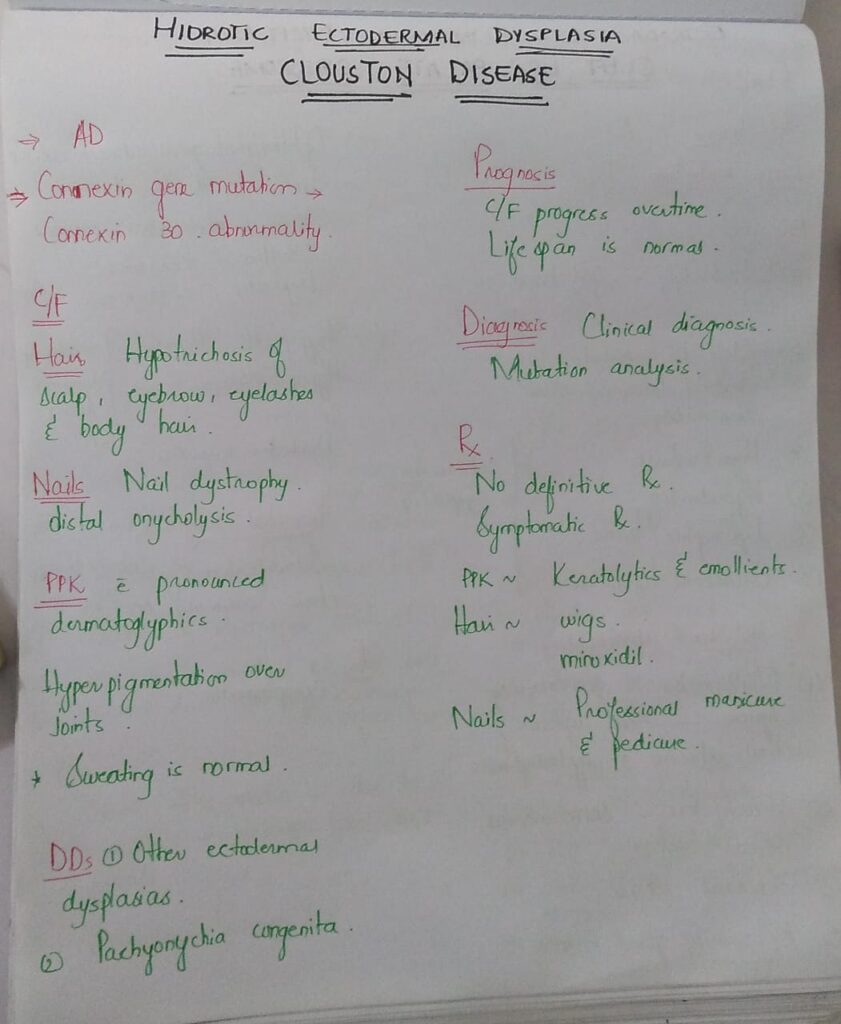 HIDROTIC ECTODERMAL DYSPLASIA
CLOUSTON DISEASE
⇒ AD
⇒ Connexin gene mutation →
Connexin 30. abnormality.
C/F
Hair Hypotrichosis of
scalp, eyebrow, eyelashes
& body hair.
Nails Nail dystrophy.
distal onycholysis.
PPK c̄ pronounced
dermatoglyphics.
Hyperpigmentation over
Joints.
→ Sweating is normal.
DDs ① Other ectodermal
dysplasias.
② Pachyonychia congenita.
Prognosis
C/F progress overtime.
Life span is normal.
Diagnosis Clinical diagnosis.
Mutation analysis.
Rx
No definitive Rx.
Symptomatic Rx.
PPK ~ Keratolytics & emollients.
Hair ~ wigs.
minoxidil.
Nails ~ Professional manicure
& pedicure.